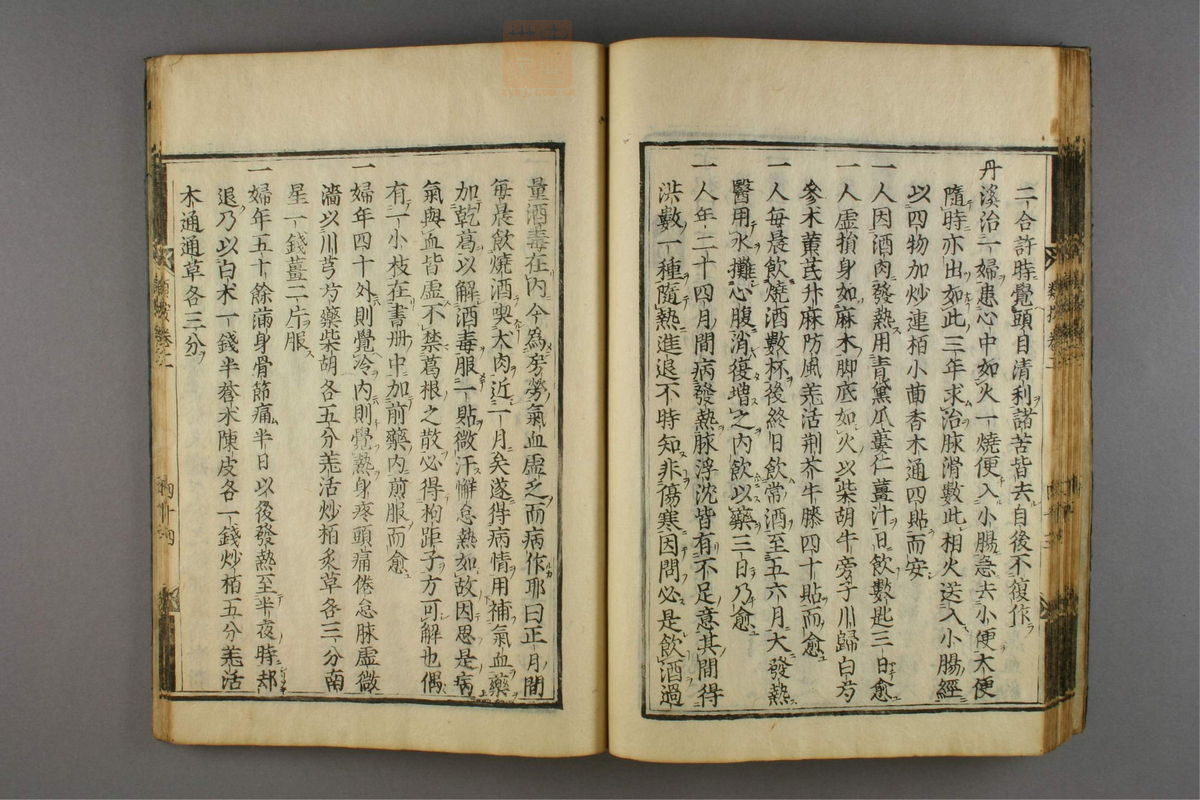 二合許時覺頭目清利諸苦皆去自後不復作
丹溪治一婦患心中如火一燒便入小腸急去小便大便
隨時亦出如此三年求治脉滑數此相火送入小腸經
以四物加炒連栢小茴香木通四貼而安
一人因酒肉發熱用青黛瓜蔞仁薑汁日飲數匙三日愈
一人虛損身如麻木脚底如火以柴胡牛旁子川歸白芍
參朮黃芪升麻防風羗活荆芥牛膝四十貼而愈
一人每晨飲燒酒數杯後終日飲常酒至五六月大發熱
醫用氷攤心腹消復增之內飲以藥三日乃愈
一人年二十四月間病發熱脉浮沈皆有不足意其間得
洪數一種隨熱進退不時知非傷寒因問必是飲酒過
量酒毒在內今為房勞氣血虛乏而病作耶曰正月間
每晨飲燒酒喫犬肉近一月矣遂得病情用補氣血藥
加乾葛以解酒毒服一貼微汗懈怠熱如故因思是病
氣與血皆虛不禁葛根之散必得枸距子方可解也偶
有一小枝在書册中加前藥內煎服而愈
一婦年四十外則覺冷內則覺熱身疼頭痛倦怠脉虛微
濇以川芎芍藥柴胡各五分羗活炒栢炙草各三分南
星一錢薑二片服
一婦年五十餘滿身骨節痛半日以後發熱至半夜時却
退乃以白朮一錢半蒼朮陳皮各一錢炒栢五分羗活
木通通草各三分